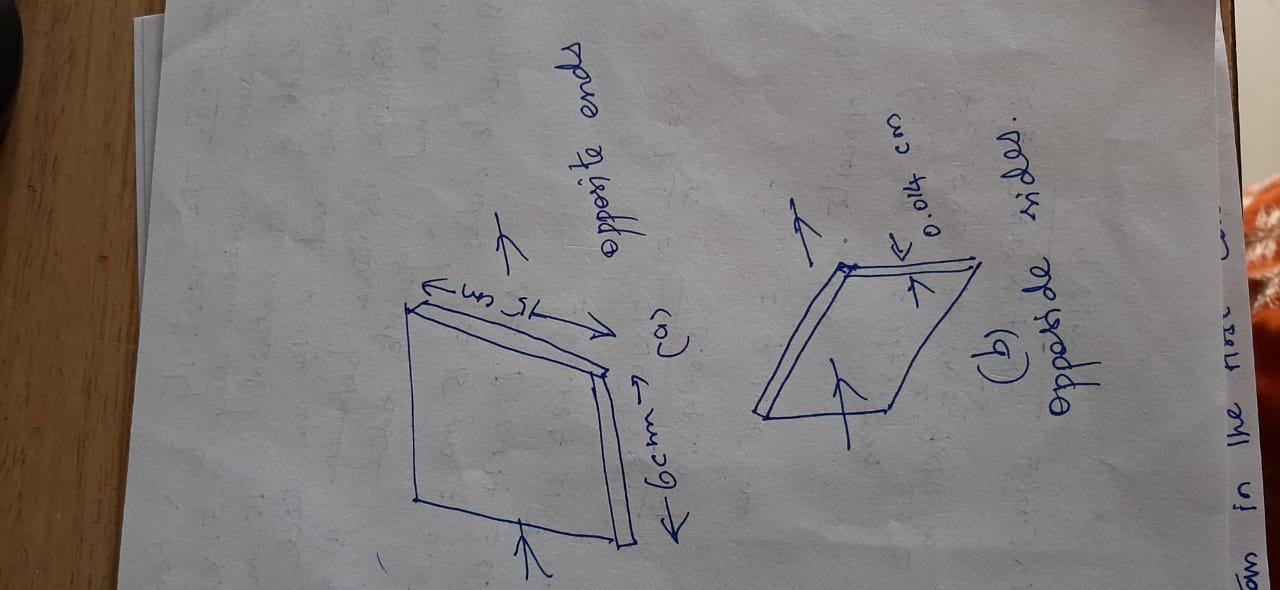 5 cm
6 cm
(a)
opposite ends
0.014 cm
(b)
opposide sides.
in the